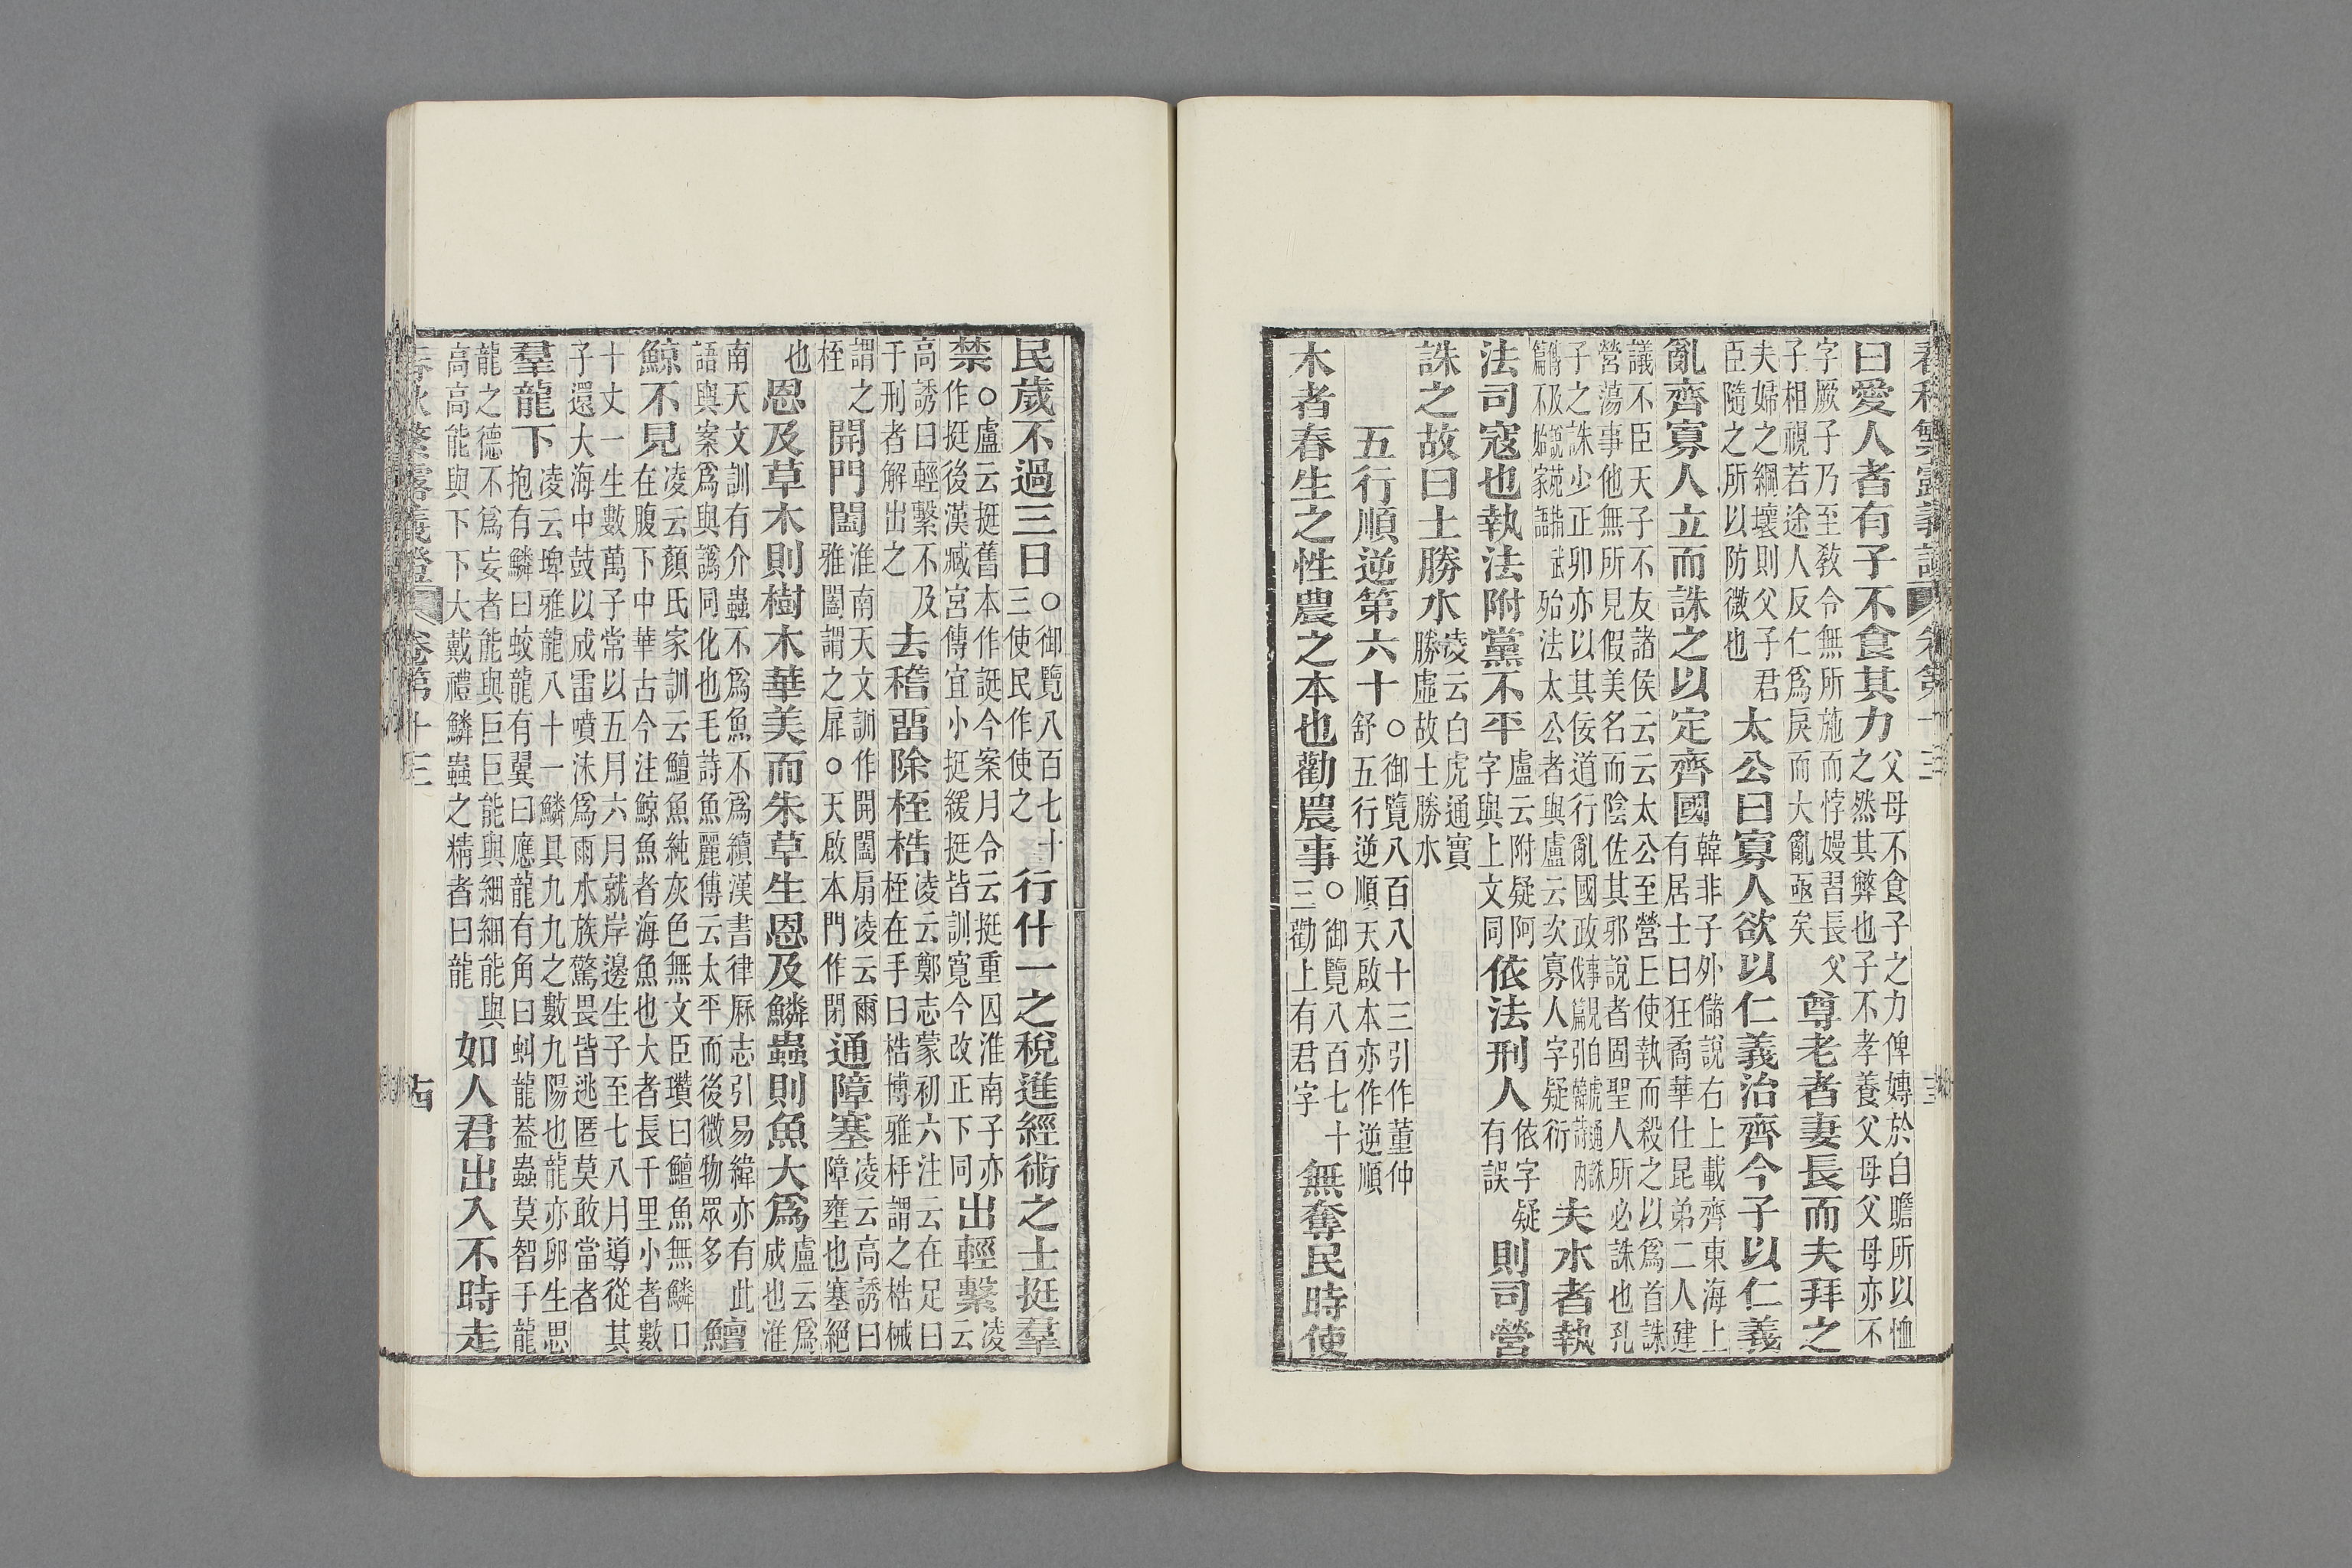 春秋繁露義證 卷第十三
曰愛人者有子不食其力父母不食子之力俾嫥於自贍所以恤之然其弊也子不孝養父母父母亦不
字厥子乃至敎令無所施而悖嫚習長父子相視若途人反仁爲戾而大亂亟矣尊老者妻長而夫拜之
夫婦之綱壞則父子君臣隨之所以防微也太公曰寡人欲以仁義治齊今子以仁義
亂齊寡人立而誅之以定齊國韓非子外儲說右上載齊東海上有居士曰狂矞華仕昆弟二人建
議不臣天子不友諸侯云云太公至營丘使執而殺之以爲首誅營蕩事他無所見假美名而陰佐其邪說者固聖人所必誅也孔
子之誅少正卯亦以其佞道行亂國政事見白虎通誅伐篇引韓詩內傳及說苑指武篇不始家語殆法太公者與盧云次寡人字疑衍夫水者執
法司寇也執法附黨不平盧云附疑阿字與上文同依法刑人依字疑有誤則司營
誅之故曰土勝水凌云白虎通實勝虛故土勝水
五行順逆第六十○御覽八百八十三引作董仲舒五行逆順天啟本亦作逆順
木者春生之性農之本也勸農事○御覽八百七十三勸上有君字無奪民時使
民歲不過三日○御覽八百七十三使民作使之行什一之稅進經術之士挺羣
禁○盧云挺舊本作誕今案月令云挺重囚淮南子亦作挺後漢臧宮傳宜小挺緩挺皆訓寬今改正下同出輕繫凌云
高誘曰輕繫不及于刑者解出之去稽畱除桎梏凌云鄭志蒙初六注云在足曰桎在手曰梏博雅杽謂之梏械
謂之桎開門闔淮南天文訓作開闔扇凌云爾雅闔謂之扉○天啟本門作閉通障塞凌云高誘曰障壅也塞絕
也恩及草木則樹木華美而朱草生恩及鱗蟲則魚大爲盧云爲成也淮
南天文訓有介蟲不爲魚不爲續漢書律厤志引易緯亦有此語與案爲與譌同化也毛詩魚麗傳云太平而後微物眾多鱣
鯨不見凌云顏氏家訓云鱣魚純灰色無文臣瓚曰鱣魚無鱗口在腹下中華古今注鯨魚者海魚也大者長千里小者數
十丈一生數萬子常以五月六月就岸邊生子至七八月導從其子還大海中鼓以成雷噴沫爲雨水族驚畏皆逃匿莫敢當者
羣龍下凌云埤雅龍八十一鱗具九九之數九陽也龍亦卵生思抱有鱗曰蛟龍有翼曰應龍有角曰虯龍蓋蟲莫智于龍
龍之德不爲妄者能與巨巨能與細細能與高高能與下下大戴禮鱗蟲之精者曰龍如人君出入不時走
春秋繁露義證 卷第十三 古